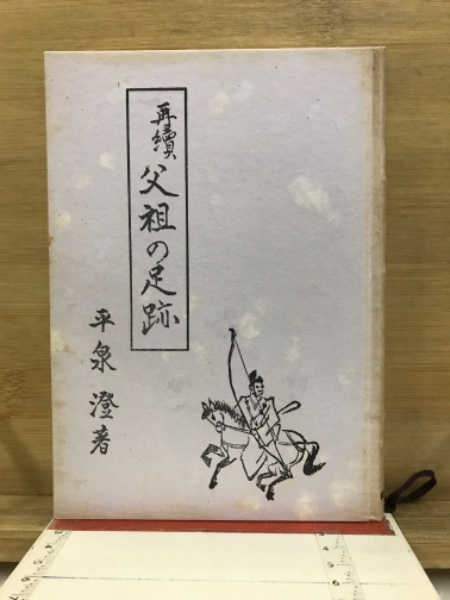 再續 父祖の足跡
平泉 澄著